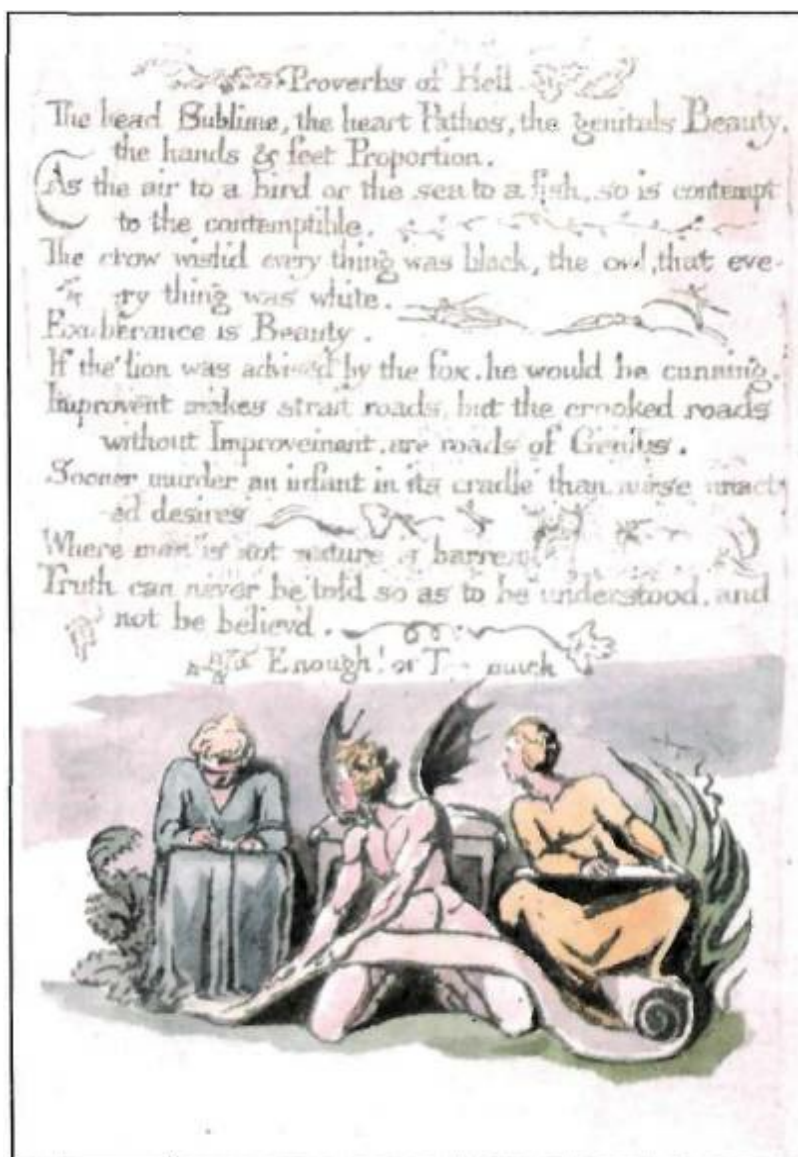 Proverbs of Hell
The head Sublime, the heart Pathos, the genitals Beauty,
the hands & feet Proportion.
As the air to a bird or the sea to a fish, so is contempt
to the contemptible.
The crow wish'd every thing was black, the owl, that eve-
ry thing was white.
Exuberance is Beauty.
If the lion was advised by the fox. he would be cunning.
Improvent makes strait roads, but the crooked roads
without Improvement. are roads of Genius.
Sooner murder an infant in its cradle than nurse unact-
ed desires
Where man is not nature is barren.
Truth can never be told so as to be understood. and
not be believ'd.
Enough! or Too much